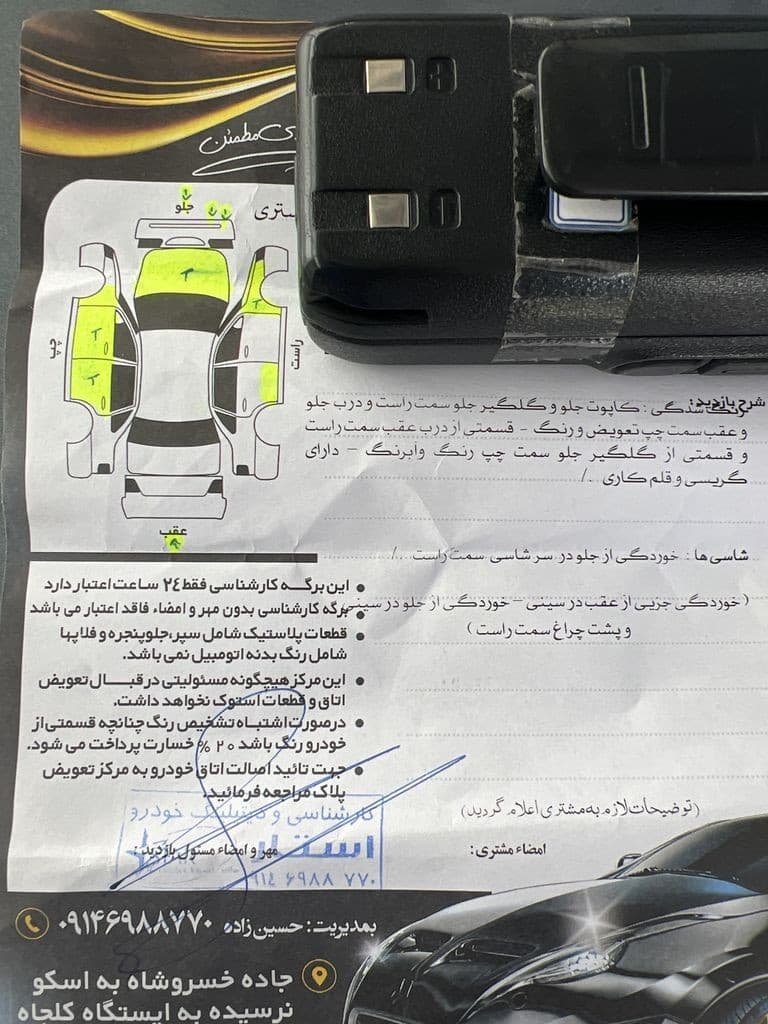 مطمئن
جلو
چپ
راست
عقب
شرح بازدید:
رنگ شدگی : کاپوت جلو و گلگیر جلو سمت راست و درب جلو
و عقب سمت چپ تعویض و رنگ - قسمتی از درب عقب سمت راست
و قسمتی از گلگیر جلو سمت چپ رنگ وابرنگ - دارای
گریسی و قلم کاری ./
شاسی ها : خوردگی از جلو در سر شاسی سمت راست ./
(خوردگی جزیی از عقب در سینی - خوردگی از جلو در سینی
و پشت چراغ سمت راست )
این برگه کارشناسی فقط ٢٤ ساعت اعتبار دارد
برگه کارشناسی بدون مهر و امضاء فاقد اعتبار می باشد
قطعات پلاستیک شامل سپر،جلوپنجره و فلاپها
شامل رنگ بدنه اتومبیل نمی باشد.
این مرکز هیچگونه مسئولیتی در قبال تعویض
اتاق و قطعات استوک نخواهد داشت.
درصورت اشتباه تشخیص رنگ چنانچه قسمتی از
خودرو رنگ باشد ٢٠ % خسارت پرداخت می شود.
جهت تائید اصالت اتاق خودرو به مرکز تعویض
پلاک مراجعه فرمائید.
(توضیحات لازم به مشتری اعلام گردید)
امضاء مشتری:
مهر و امضاء مسئول بازدید:
کارشناسی و دیتیلینگ خودرو
۰۹۱۴ ۶۹۸۸ ۷۷۰
بمدیریت: حسین زاده ۰۹۱۴۶۹۸۸۷۷۰
جاده خسروشاه به اسکو
نرسیده به ایستگاه کلجاه